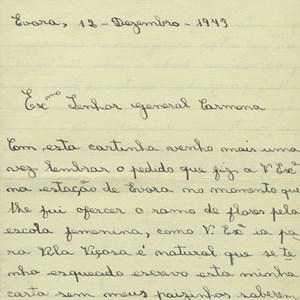 Evora, 12 - Dezembro - 1943
Exmo Senhor general Carmona
Com esta cartinha venho mais uma
vez lembrar o pedido que fiz a V. Exª
na estação de Evora no momento que
lhe fui ofercer o ramo de flores pela
escola femenina, como V. Exª ia pa
ra Vila Viçosa é natural que se te
nha esquecido escrevo esta minha
carta sem meus paizinhos saberem